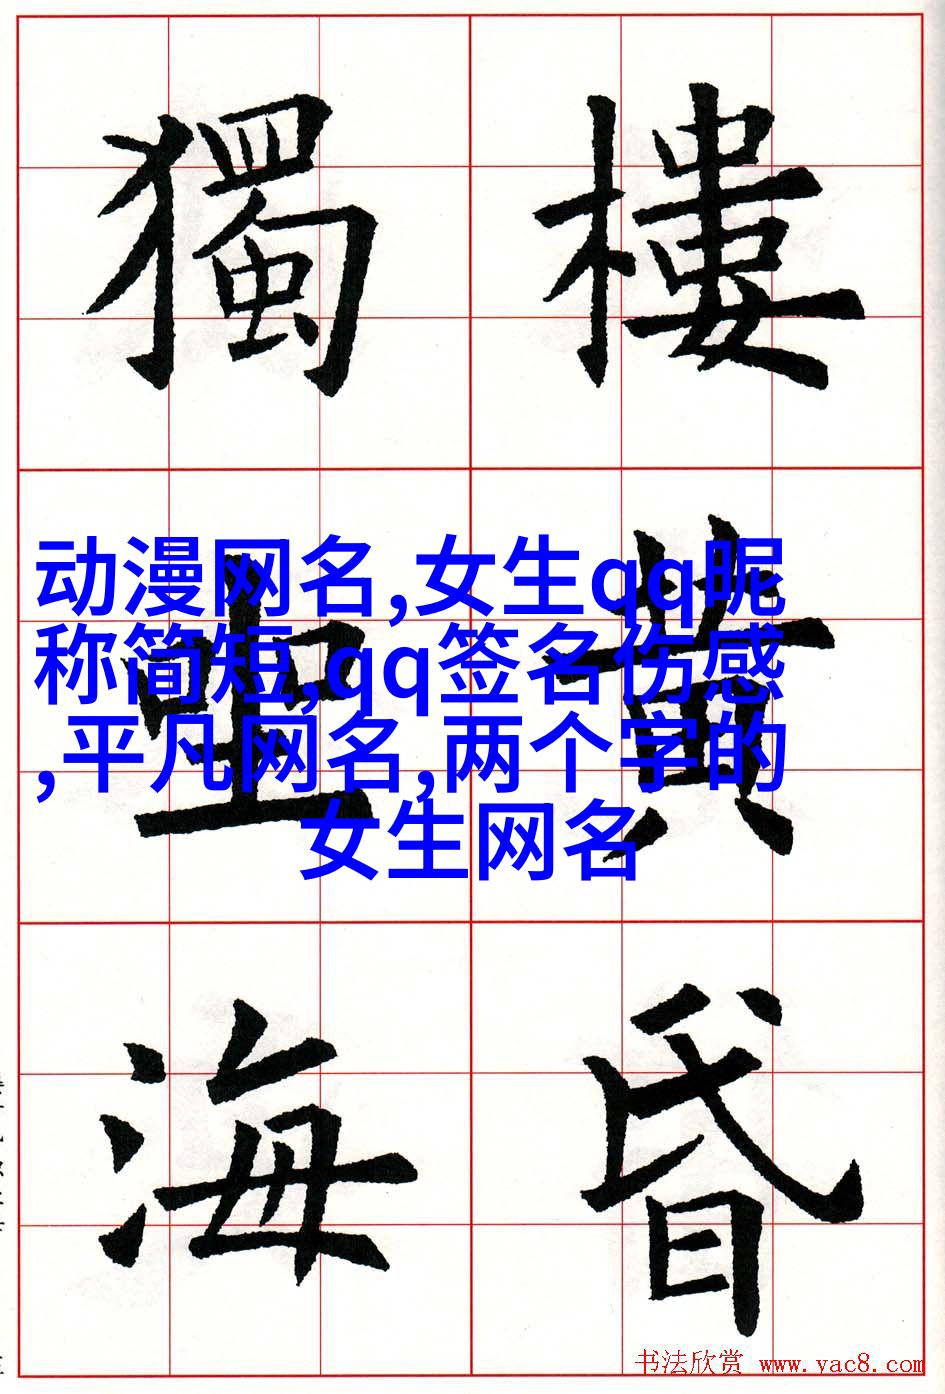 樓黃昏
獨坐海
动漫网名,女生qq昵
称简短,qq签名伤感
,平凡网名,两个字的
女生网名
书法欣赏 www.yac8.com